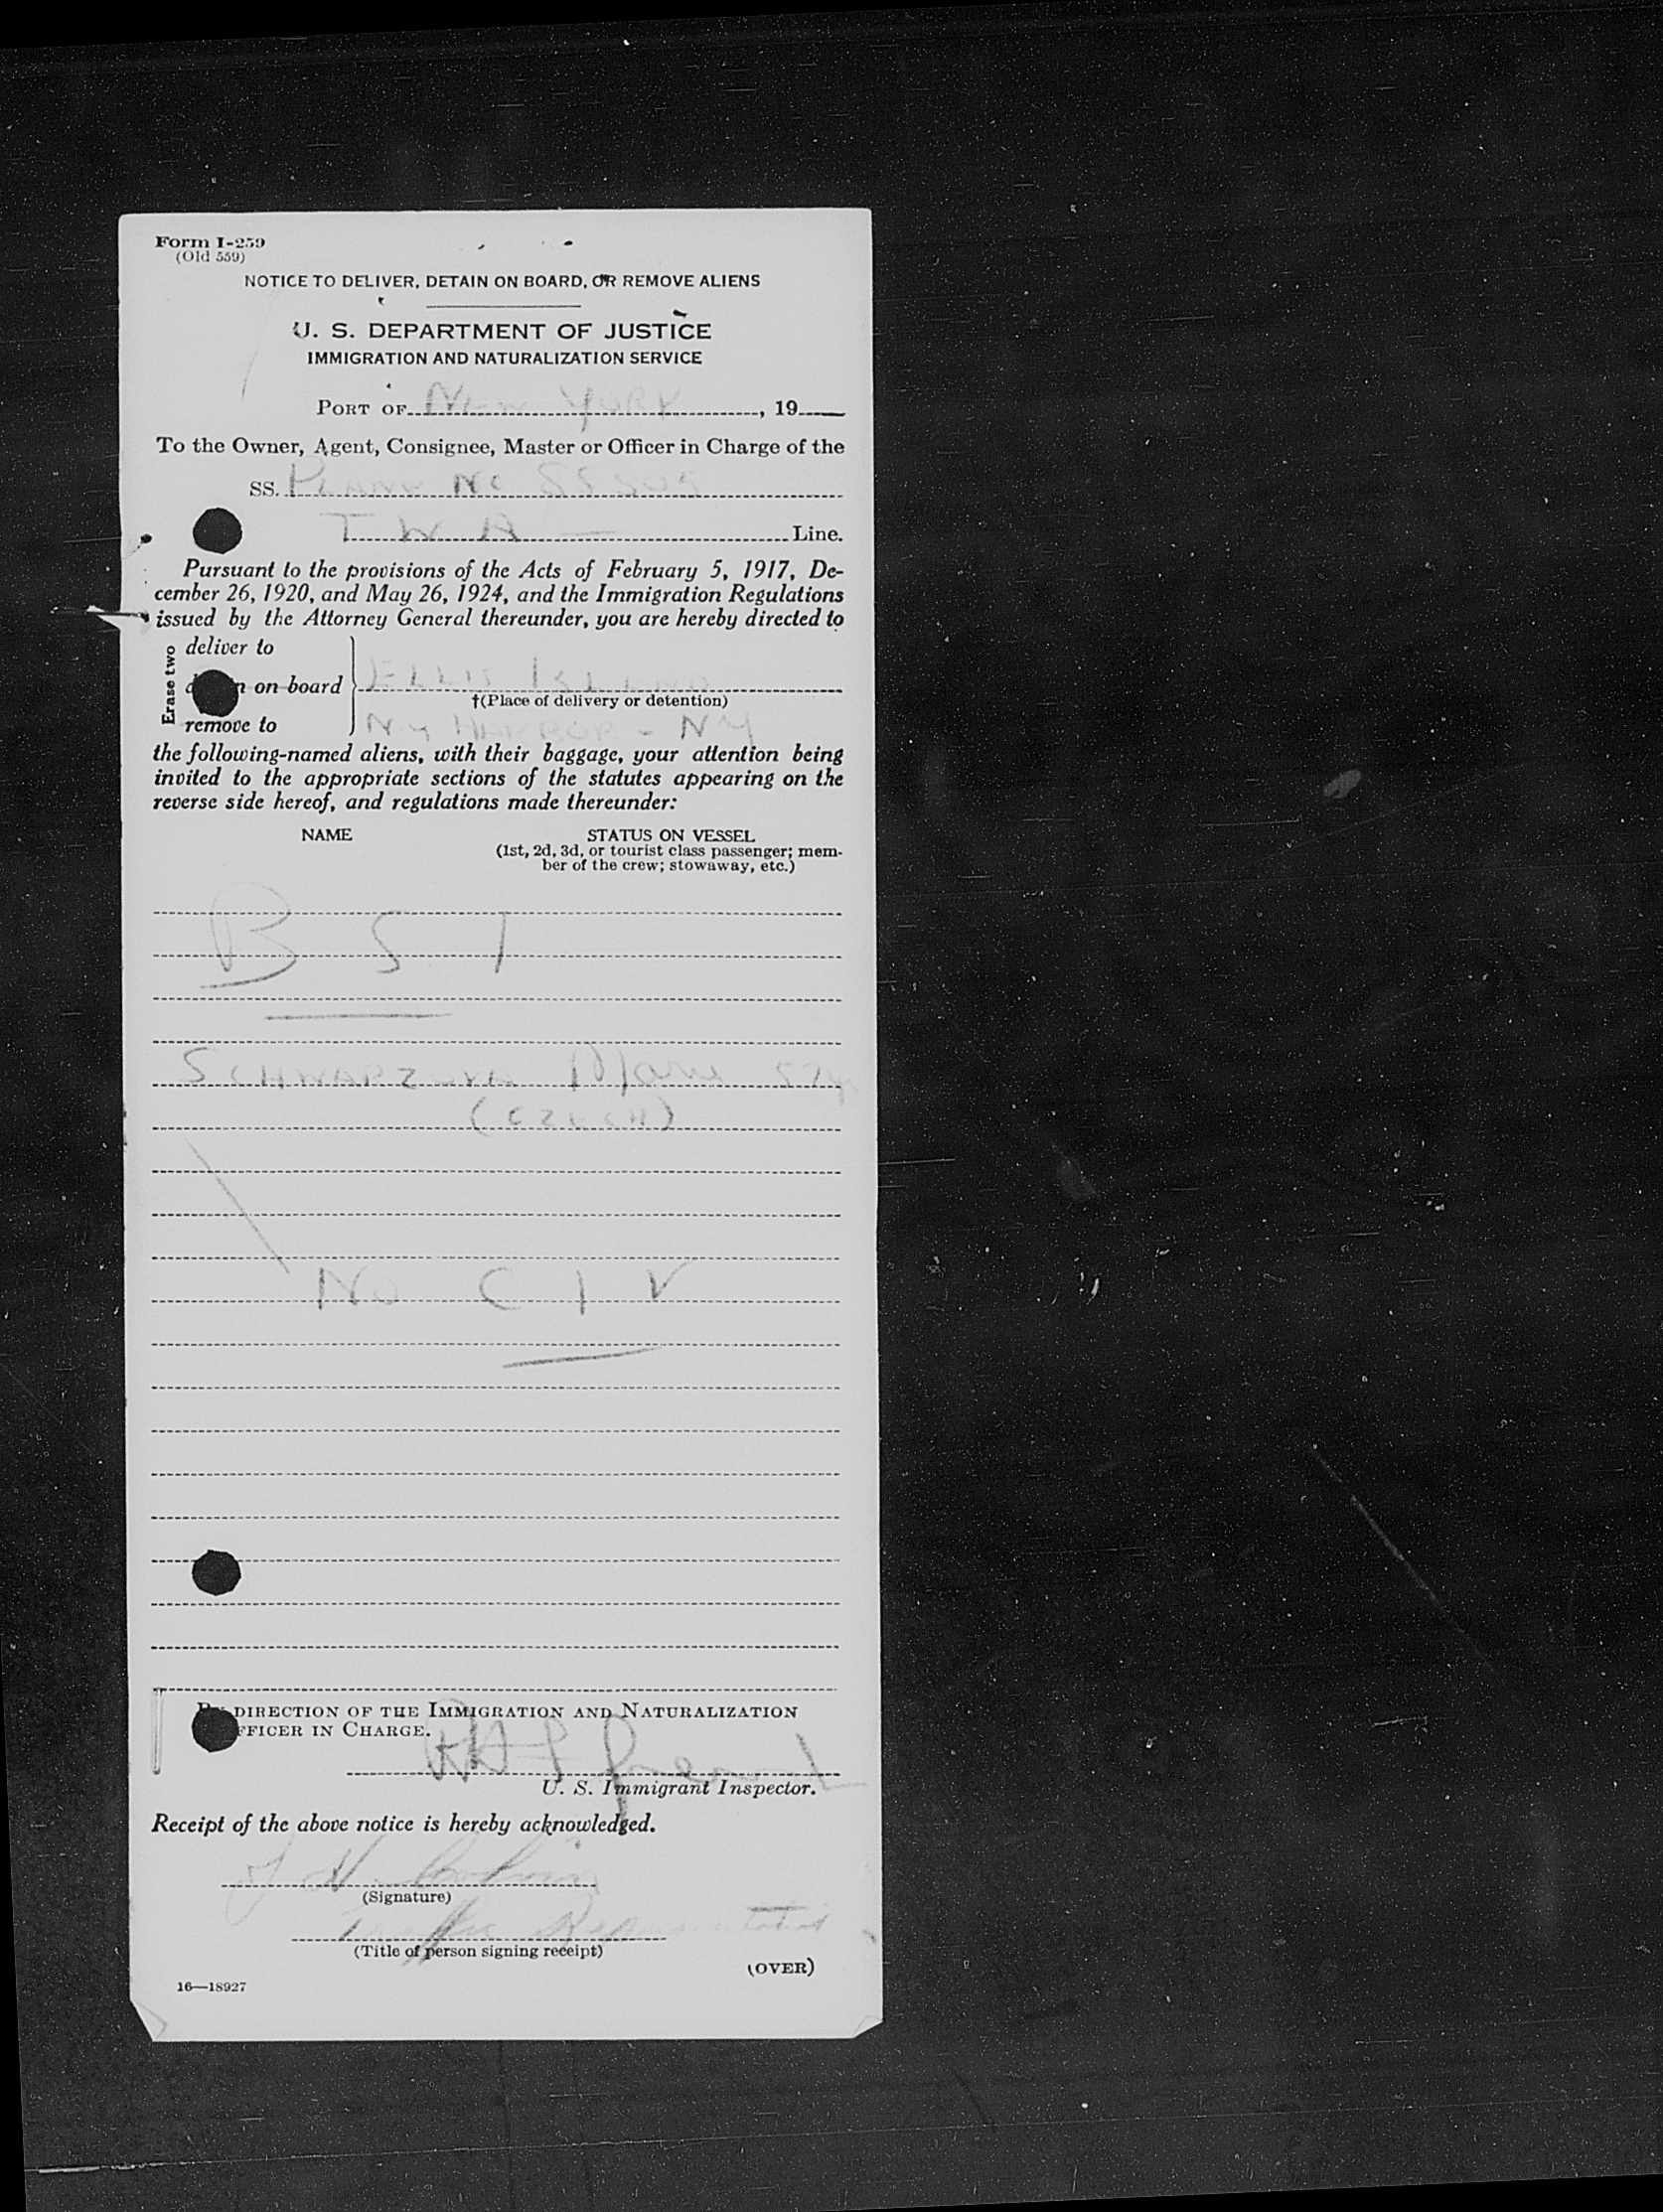 Form I-259
(Old 559)
NOTICE TO DELIVER, DETAIN ON BOARD, OR REMOVE ALIENS
U. S. DEPARTMENT OF JUSTICE
IMMIGRATION AND NATURALIZATION SERVICE
PORT OF New York, 19
To the Owner, Agent, Consignee, Master or Officer in Charge of the
SS. Plane NC
T W A — Line.
Pursuant to the provisions of the Acts of February 5, 1917, De-
cember 26, 1920, and May 26, 1924, and the Immigration Regulations
issued by the Attorney General thereunder, you are hereby directed to
Erase two
deliver to
on board ELLIS ISLAND
†(Place of delivery or detention)
remove to NY HARBOR - NY
the following-named aliens, with their baggage, your attention being
invited to the appropriate sections of the statutes appearing on the
reverse side hereof, and regulations made thereunder:
NAME STATUS ON VESSEL
(1st, 2d, 3d, or tourist class passenger; mem-
ber of the crew; stowaway, etc.)
B S I
(CZECH)
No C I V
DIRECTION OF THE IMMIGRATION AND NATURALIZATION
FFICER IN CHARGE.
U. S. Immigrant Inspector.
Receipt of the above notice is hereby acknowledged.
(Signature)
Traffic Representative
(Title of person signing receipt)
(OVER)
16—18927